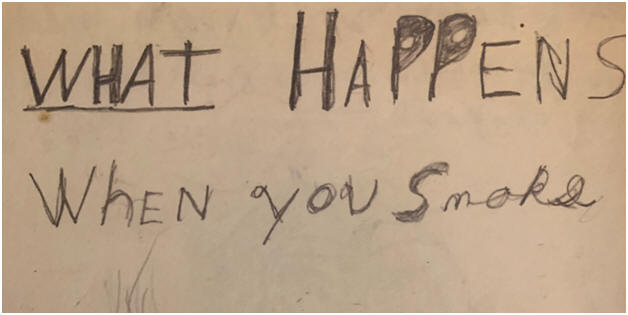 WHAT HAPPENS
WhEN you Smoke